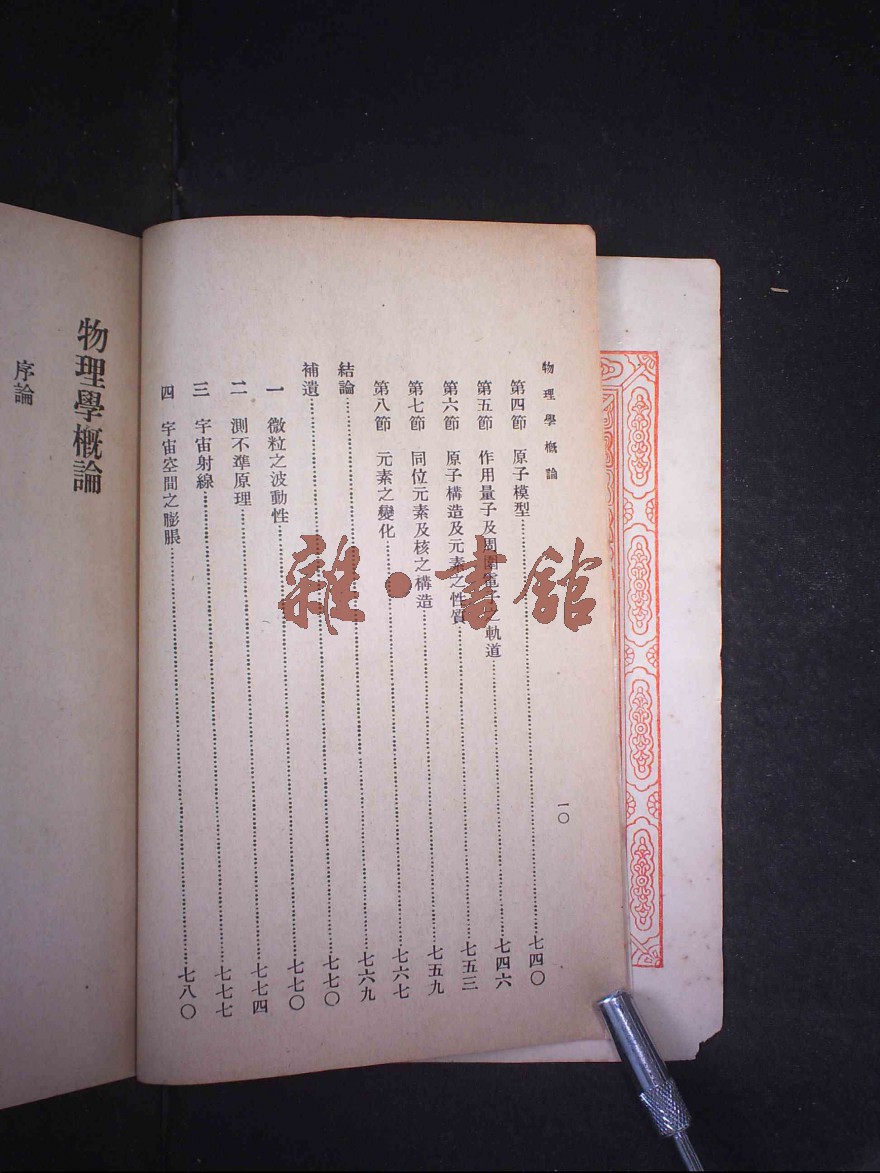 物理學概論
一〇
第四節 原子模型……七四〇
第五節 作用量子及周圍電子之軌道……七四六
第六節 原子構造及元素之性質……七五三
第七節 同位元素及核之構造……七五九
第八節 元素之變化……七六七
結論……七六九
補遺……七七〇
一 微粒之波動性……七七〇
二 測不準原理……七七四
三 宇宙射線……七七七
四 宇宙空間之膨脹……七八〇
物理學概論
序論
雜·書館